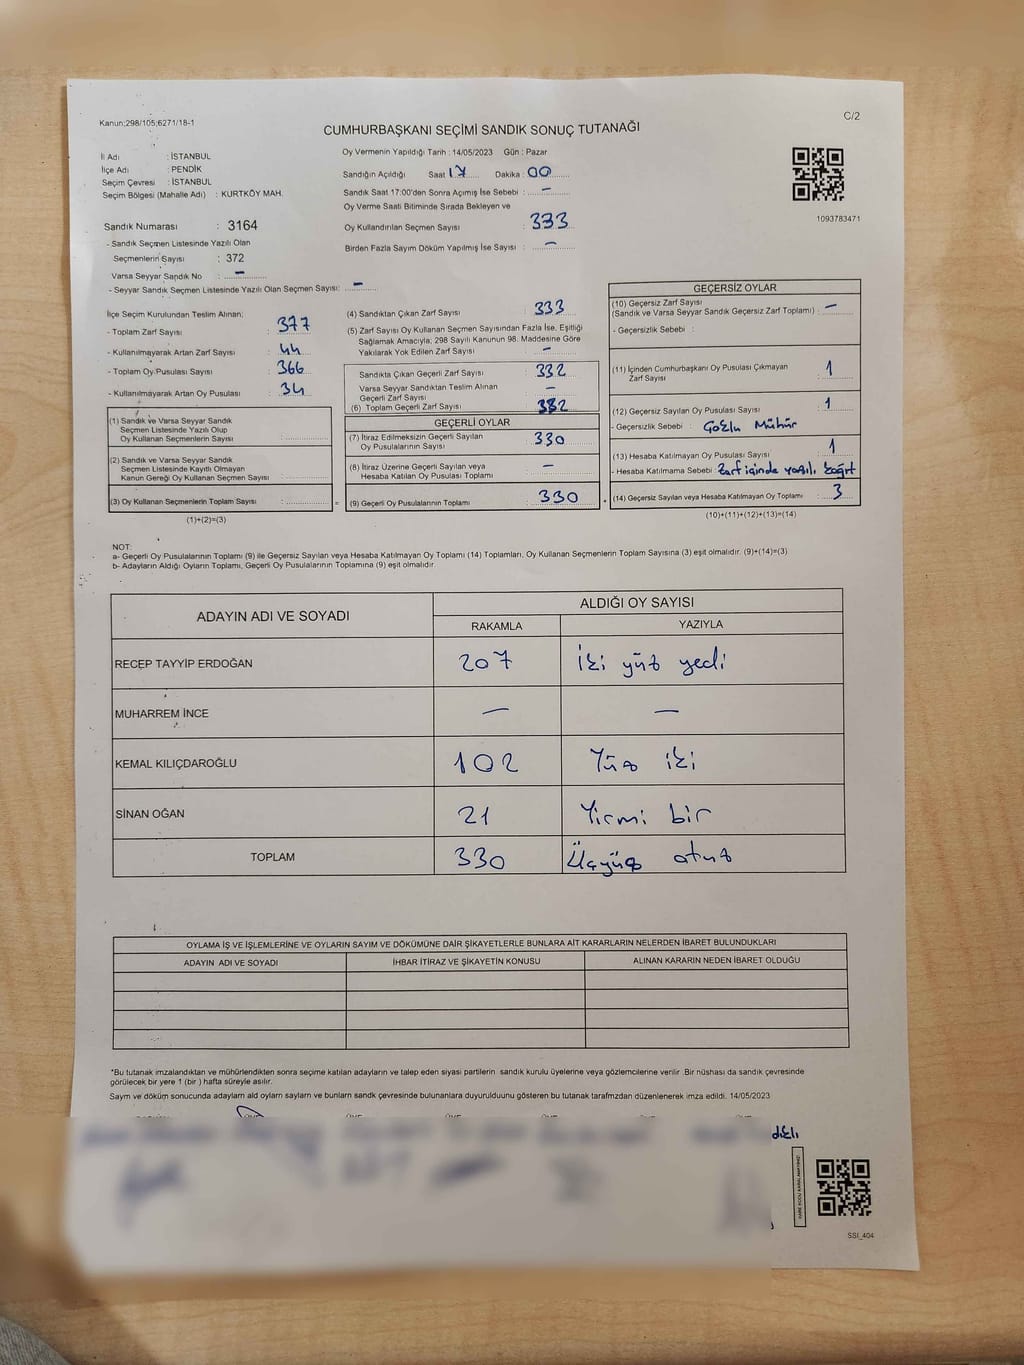 Kanun;298/105;6271/18-1
C/2
CUMHURBAŞKANI SEÇİMİ SANDIK SONUÇ TUTANAĞI
İl Adı : İSTANBUL
İlçe Adı : PENDİK
Seçim Çevresi : İSTANBUL
Seçim Bölgesi (Mahalle Adı) : KURTKÖY MAH.
Oy Vermenin Yapıldığı Tarih : 14/05/2023 Gün : Pazar
Sandığın Açıldığı Saat 17 Dakika : 00
Sandık Saat 17:00'den Sonra Açımış İse Sebebi : –
Oy Verme Saati Bitiminde Sırada Bekleyen ve
Oy Kullandırılan Seçmen Sayısı : 333
Birden Fazla Sayım Döküm Yapılmış İse Sayısı : –
1093783471
Sandık Numarası : 3164
- Sandık Seçmen Listesinde Yazılı Olan
Seçmenlerin Sayısı : 372
Varsa Seyyar Sandık No : –
- Seyyar Sandık Seçmen Listesinde Yazılı Olan Seçmen Sayısı: –
İlçe Seçim Kurulundan Teslim Alınan;
- Toplam Zarf Sayısı : 377
- Kullanılmayarak Artan Zarf Sayısı : 44
- Toplam Oy Pusulası Sayısı : 366
- Kullanılmayarak Artan Oy Pusulası : 34
(1) Sandık ve Varsa Seyyar Sandık
Seçmen Listesinde Yazılı Olup
Oy Kullanan Seçmenlerin Sayısı :
(2) Sandık ve Varsa Seyyar Sandık
Seçmen Listesinde Kayıtlı Olmayan
Kanun Gereği Oy Kullanan Seçmen Sayısı :
(3) Oy Kullanan Seçmenlerin Toplam Sayısı : =
(1)+(2)=(3)
(4) Sandıktan Çıkan Zarf Sayısı : 333
(5) Zarf Sayısı Oy Kullanan Seçmen Sayısından Fazla İse, Eşitliği
Sağlamak Amacıyla; 298 Sayılı Kanunun 98. Maddesine Göre
Yakılarak Yok Edilen Zarf Sayısı : –
Sandıkta Çıkan Geçerli Zarf Sayısı : 332
Varsa Seyyar Sandıktan Teslim Alınan
Geçerli Zarf Sayısı : –
(6) Toplam Geçerli Zarf Sayısı : 332
GEÇERLİ OYLAR
(7) İtiraz Edilmeksizin Geçerli Sayılan
Oy Pusulalarının Sayısı : 330
(8) İtiraz Üzerine Geçerli Sayılan veya
Hesaba Katılan Oy Pusulası Toplamı : –
(9) Geçerli Oy Pusulalarının Toplamı : 330
GEÇERSİZ OYLAR
(10) Geçersiz Zarf Sayısı
(Sandık ve Varsa Seyyar Sandık Geçersiz Zarf Toplamı) : –
- Geçersizlik Sebebi :
(11) İçinden Cumhurbaşkanı Oy Pusulası Çıkmayan
Zarf Sayısı : 1
(12) Geçersiz Sayılan Oy Pusulası Sayısı : 1
- Geçersizlik Sebebi : Çoklu Mühür
(13) Hesaba Katılmayan Oy Pusulası Sayısı : 1
- Hesaba Katılmama Sebebi : Zarf içinde yazılı kağıt
(14) Geçersiz Sayılan veya Hesaba Katılmayan Oy Toplamı : 3
(10)+(11)+(12)+(13)=(14)
NOT:
a- Geçerli Oy Pusulalarının Toplamı (9) ile Geçersiz Sayılan veya Hesaba Katılmayan Oy Toplamı (14) Toplamları, Oy Kullanan Seçmenlerin Toplam Sayısına (3) eşit olmalıdır. (9)+(14)=(3)
b- Adayların Aldığı Oyların Toplamı, Geçerli Oy Pusulalarının Toplamına (9) eşit olmalıdır.
ADAYIN ADI VE SOYADI
ALDIĞI OY SAYISI
RAKAMLA YAZIYLA
RECEP TAYYİP ERDOĞAN 207 İki yüz yedi
MUHARREM İNCE – –
KEMAL KILIÇDAROĞLU 102 Yüz iki
SİNAN OĞAN 21 Yirmi bir
TOPLAM 330 Üçyüz otuz
OYLAMA İŞ VE İŞLEMLERİNE VE OYLARIN SAYIM VE DÖKÜMÜNE DAİR ŞİKAYETLERLE BUNLARA AİT KARARLARIN NELERDEN İBARET BULUNDUKLARI
ADAYIN ADI VE SOYADI İHBAR İTİRAZ VE ŞİKAYETİN KONUSU ALINAN KARARIN NEDEN İBARET OLDUĞU
*Bu tutanak imzalandıktan ve mühürlendikten sonra seçime katılan adayların ve talep eden siyasi partilerin sandık kurulu üyelerine veya gözlemcilerine verilir .Bir nüshası da sandık çevresinde
görülecek bir yere 1 (bir ) hafta süreyle asılır.
Sayım ve döküm sonucunda adaylarn ald oylarn sayların ve bunların sandk çevresinde bulunanlara duyurulduunu gösteren bu tutanak tarafmzdan düzenlenerek imza edildi. 14/05/2023
SSI_404